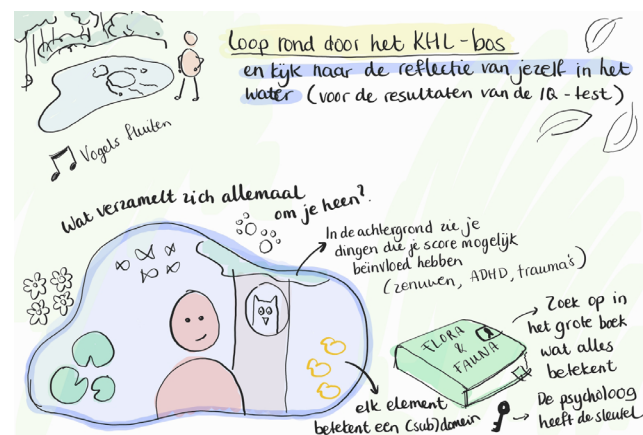 Loop rond door het KHL-bos
en kijk naar de reflectie van jezelf in het
water (voor de resultaten van de IQ-test)
Vogels fluiten
Wat verzamelt zich allemaal
om je heen?
In de achtergrond zie je
dingen die je score mogelijk
beïnvloed hebben
(zenuwen, ADHD, trauma's)
FLORA
&
FAUNA
Zoek op in
het grote boek
wat alles
betekent
elk element
betekent een (sub)domein
De psycholoog
heeft de sleutel